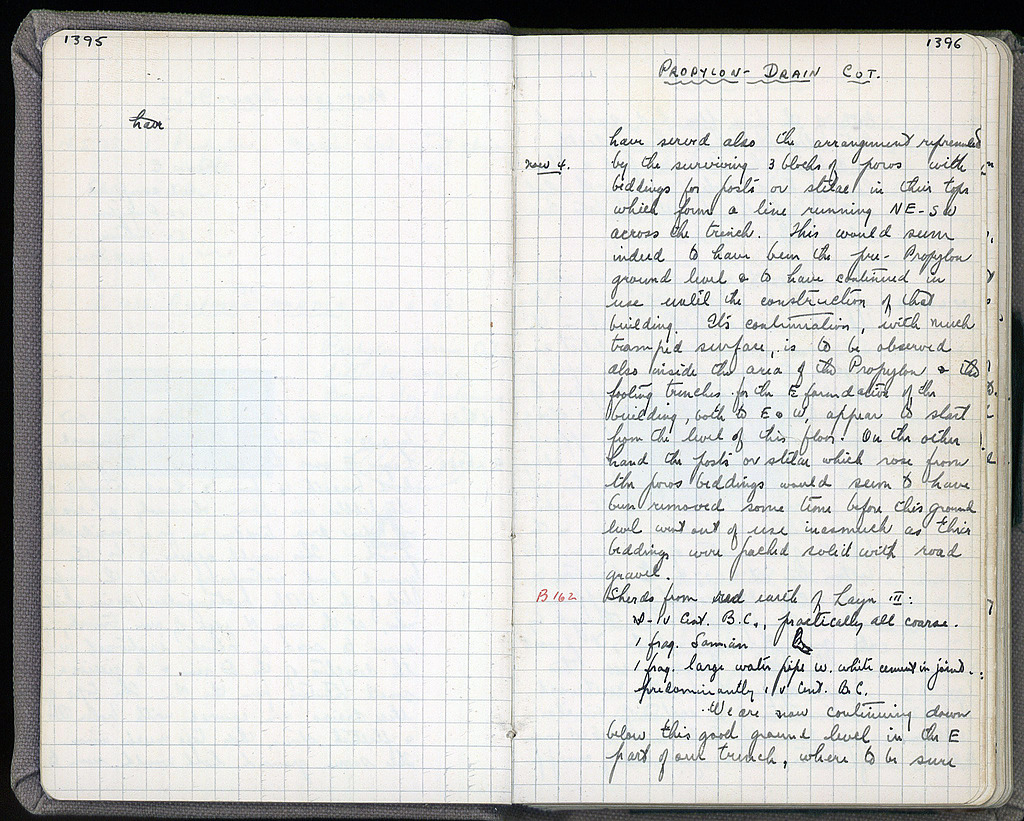 1395
have
1396
PROPYLON - DRAIN CUT.
have served also the arrangement represented
Nov 4. by the surviving 3 blocks of poros with
beddings for posts or stelae in their tops
which form a line running NE-SW
across the trench. This would seem
indeed to have been the pre-Propylon
ground level & to have continued in
use until the construction of that
building. Its continuation, with much
tramped surface, is to be observed
also inside the area of the Propylon & the
footing trenches for the E foundation of the
building, both to E & W, appear to start
from the level of this floor. On the other
hand the posts or stelae which rose from
the poros beddings would seem to have
been removed some time before this ground
level went out of use inasmuch as their
beddings were packed solid with road
gravel.
B 162 Sherds from red earth of Layer III:
IV Cent. B.C., practically all coarse.
1 frag. Samian
1 frag. large water pipe w. white cement in joint.
predominantly IV Cent. B.C.
We are now continuing down
below this good ground level in the E
part of our trench, where to be sure